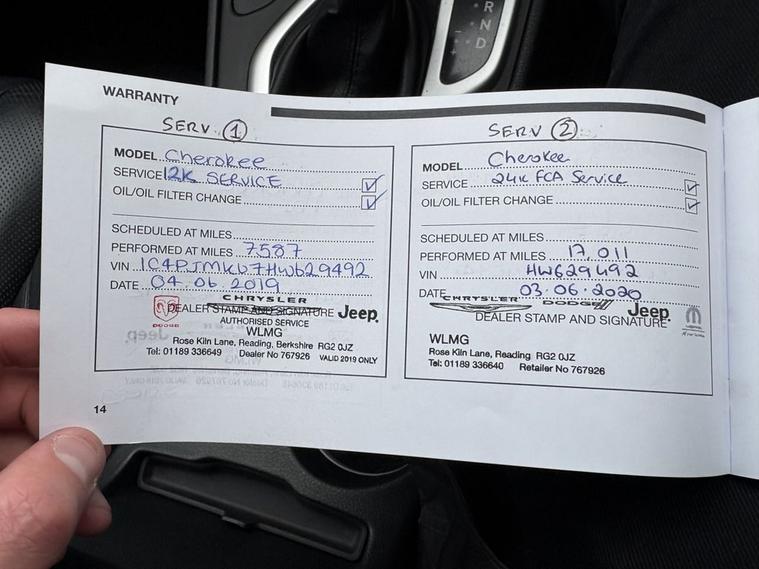 R
N
D
WARRANTY
SERV ①
MODEL Cherokee
SERVICE 12K SERVICE
OIL/OIL FILTER CHANGE
SCHEDULED AT MILES
PERFORMED AT MILES 7587
VIN 1C4PJMKb7HW629492
DATE 04.06.2019
CHRYSLER
DODGE
DEALER STAMP AND SIGNATURE Jeep
AUTHORISED SERVICE
WLMG
Rose Kiln Lane, Reading, Berkshire RG2 0JZ
Tel: 01189 336649 Dealer No 767926 VALID 2019 ONLY
SERV ②
MODEL Cherokee
SERVICE 24K FCA Service
OIL/OIL FILTER CHANGE
SCHEDULED AT MILES
PERFORMED AT MILES 17,011
VIN HW629492
DATE 03.06.2020
CHRYSLER DODGE Jeep
DEALER STAMP AND SIGNATURE
WLMG
Rose Kiln Lane, Reading RG2 0JZ
Tel: 01189 336640 Retailer No 767926
14